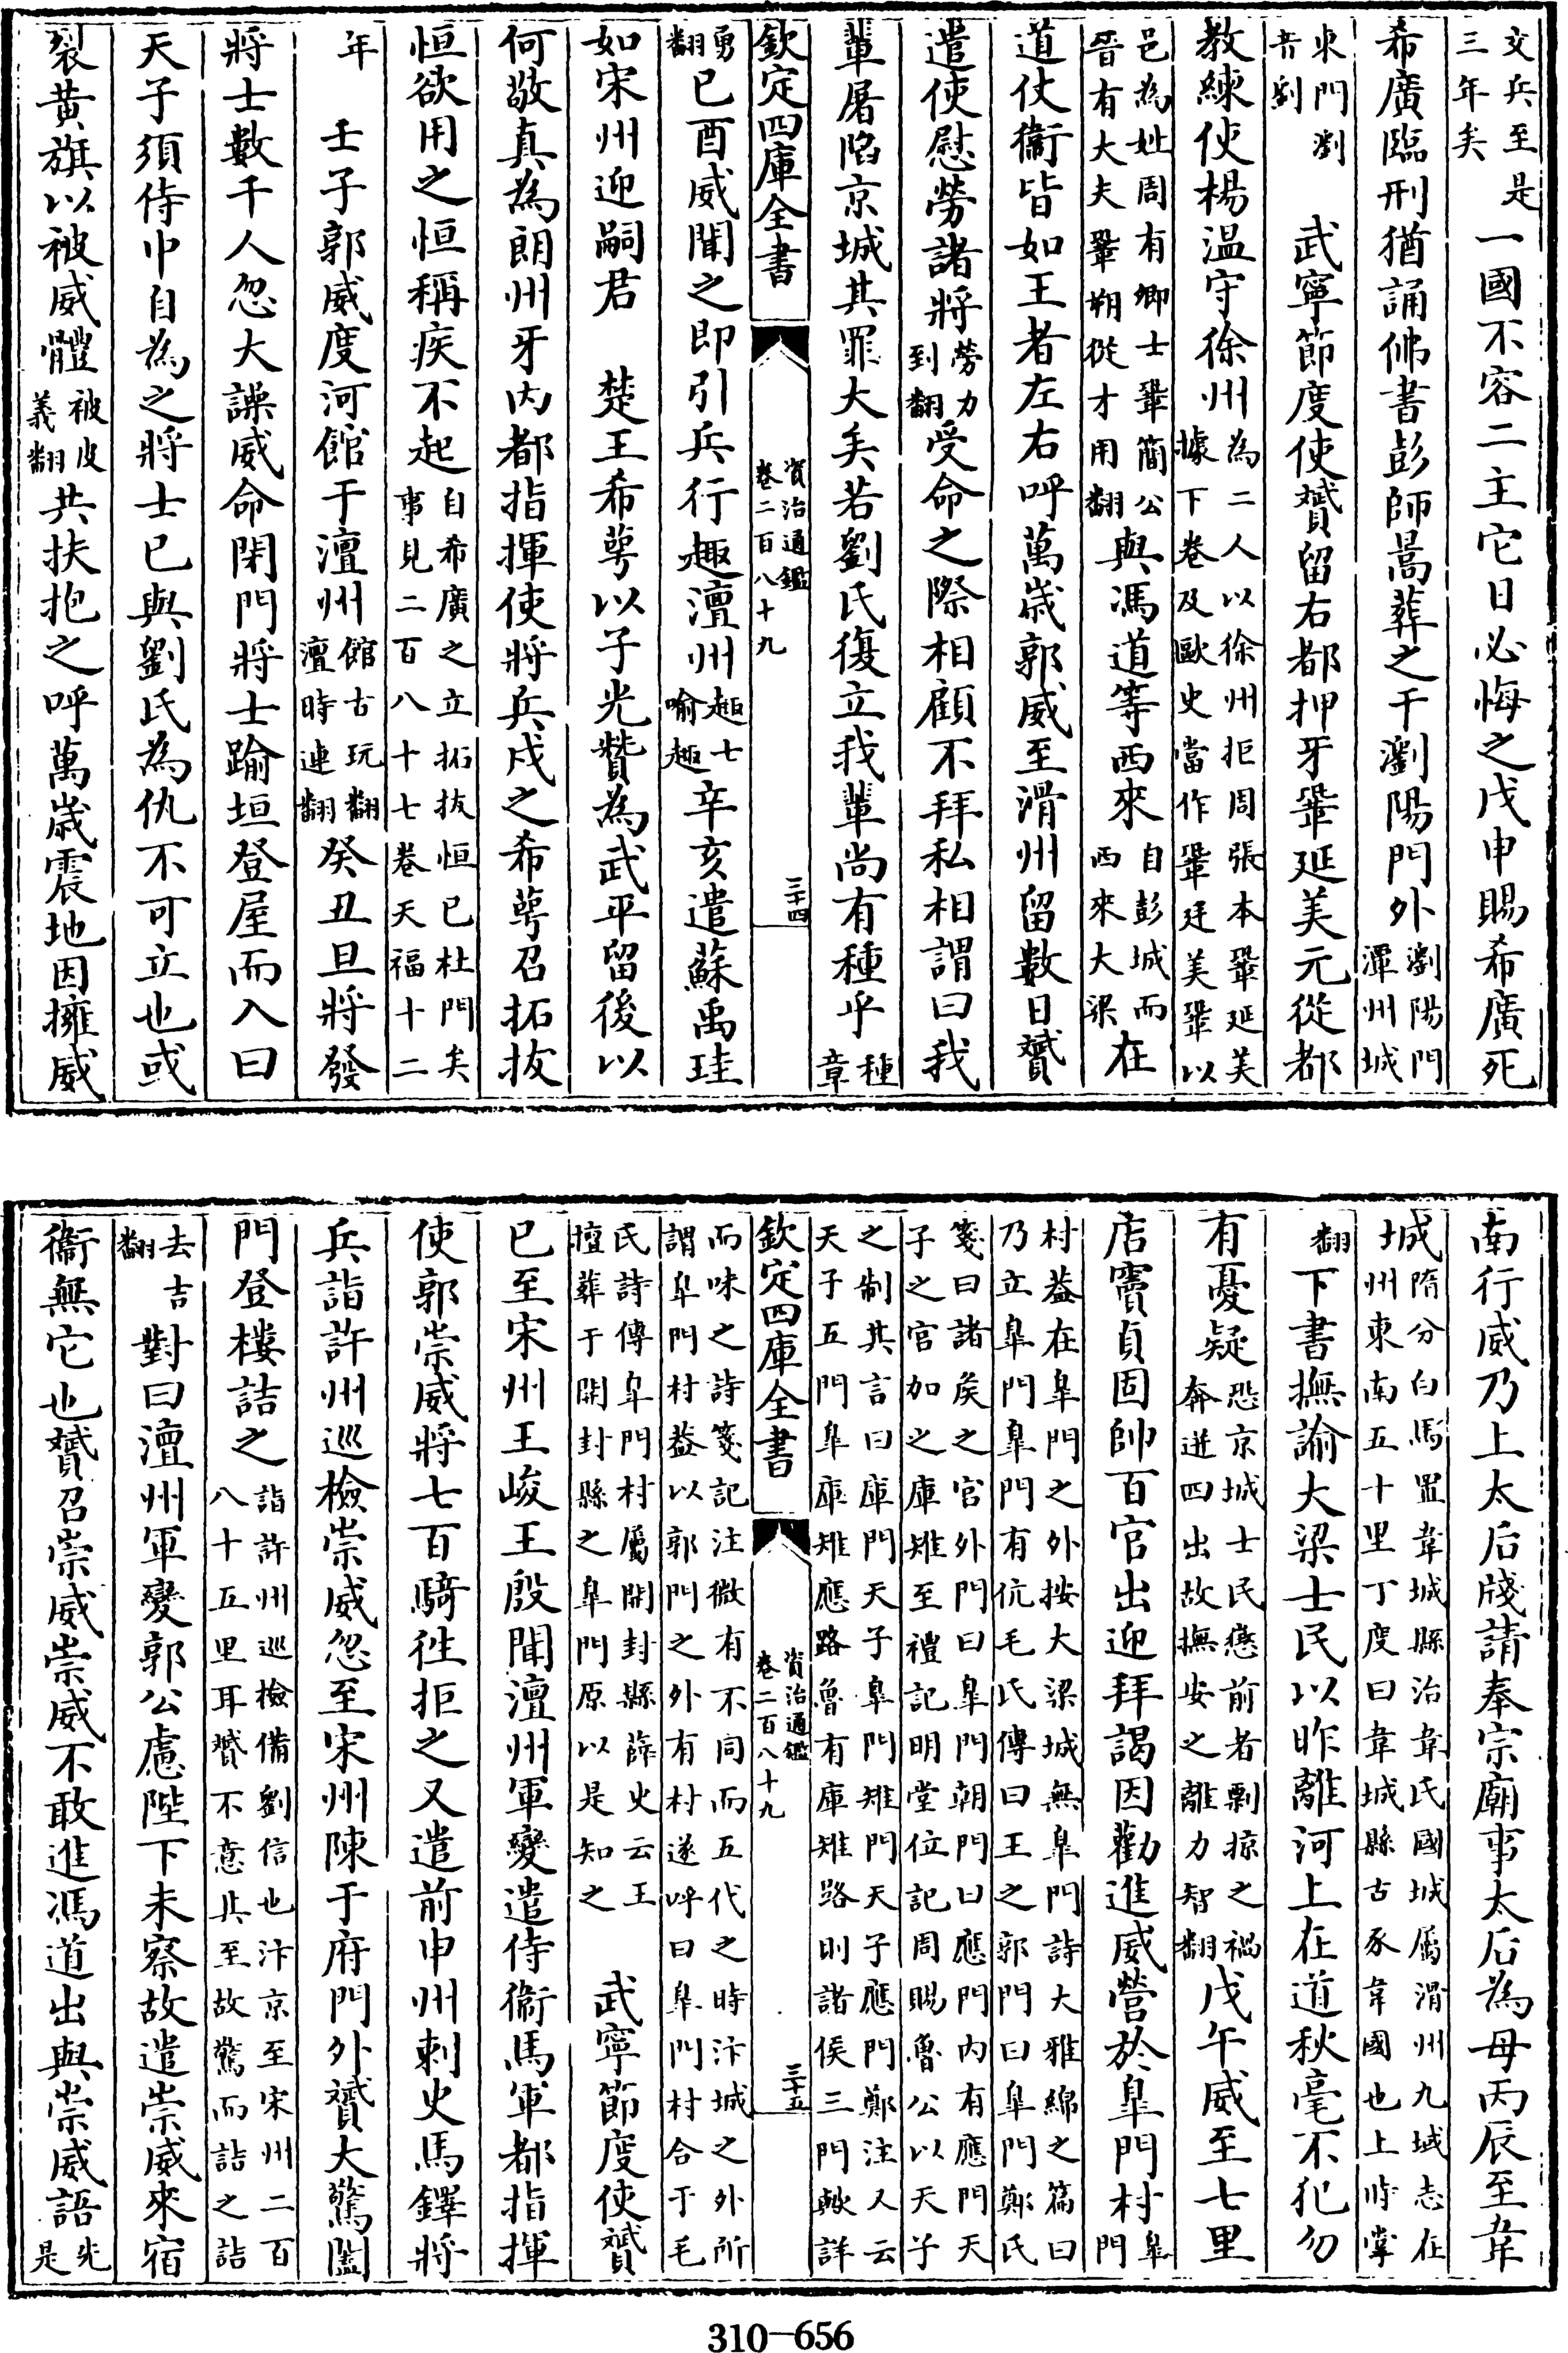 交兵至是三年矣一國不容二主它日必悔之戊申賜希廣死
希廣臨刑猶誦佛書彭師暠葬之于瀏陽門外瀏陽門潭州城
東門瀏音劉武寧節度使贇留右都押牙鞏延美元從都
教練使楊溫守徐州為二人以徐州拒周張本鞏延美據下卷及歐史當作鞏廷美鞏以
邑為姓周有卿士鞏簡公晉有大夫鞏朔從才用翻與馮道等西來自彭城而西來大梁在
道仗衞皆如王者左右呼萬歲郭威至滑州留數日贇
遣使慰勞諸將勞力到翻受命之際相顧不拜私相謂曰我
輩屠陷京城其罪大矣若劉氏復立我輩尚有種乎種章
欽定四庫全書 資治通鑑卷二百八十九 三十四
勇翻已酉威聞之即引兵行趣澶州趣七喻趣辛亥遣蘇禹珪
如宋州迎嗣君 楚王希萼以子光贊為武平留後以
何敬真為朗州牙內都指揮使將兵戍之希萼召拓拔
恒欲用之恒稱疾不起自希廣之立拓拔恒已杜門矣事見二百八十七卷天福十二
年 壬子郭威度河館于澶州館古玩翻澶時連翻癸丑旦將發
將士數千人忽大譟威命閉門將士踰垣登屋而入曰
天子須侍中自為之將士已與劉氏為仇不可立也或
裂黃旗以被威體被皮義翻共扶抱之呼萬歲震地因擁威
南行威乃上太后牋請奉宗廟事太后為母丙辰至韋
城隋分白馬置韋城縣治韋氏國城屬滑州九域志在州東南五十里丁度曰韋城縣古豕韋國也上時掌
翻下書撫諭大梁士民以昨離河上在道秋毫不犯勿
有憂疑恐京城士民懲前者剽掠之禍奔迸四出故撫安之離力智翻戊午威至七里
店竇貞固帥百官出迎拜謁因勸進威營於臯門村臯門
村蓋在臯門之外按大梁城無臯門詩大雅綿之篇曰乃立臯門臯門有伉毛氏傳曰王之郭門曰臯門鄭氏
箋曰諸侯之官外門曰臯門朝門曰應門內有應門天子之官加之庫雉至禮記明堂位記周賜魯公以天子
之制其言曰庫門天子臯門雉門天子應門鄭注又云天子五門臯庫雉應路魯有庫雉路則諸侯三門歟詳
欽定四庫全書 資治通鑑卷二百八十九 三十五
而味之詩箋記注微有不同而五代之時汴城之外所謂臯門村蓋以郭門之外有村遂呼曰臯門村合于毛
氏詩傳臯門村屬開封縣薛史云王擅葬于開封縣之臯門原以是知之 武寧節度使贇
已至宋州王峻王殷聞澶州軍變遣侍衞馬軍都指揮
使郭崇威將七百騎往拒之又遣前申州刺史馬鐸將
兵詣許州巡檢崇威忽至宋州陳于府門外贇大驚闔
門登樓詰之詣許州巡檢備劉信也汴京至宋州二百八十五里耳贇不意其至故驚而詰之詰
去吉翻對曰澶州軍變郭公慮陛下未察故遣崇威來宿
衞無它也贇召崇威崇威不敢進馮道出與崇威語先是
310-656